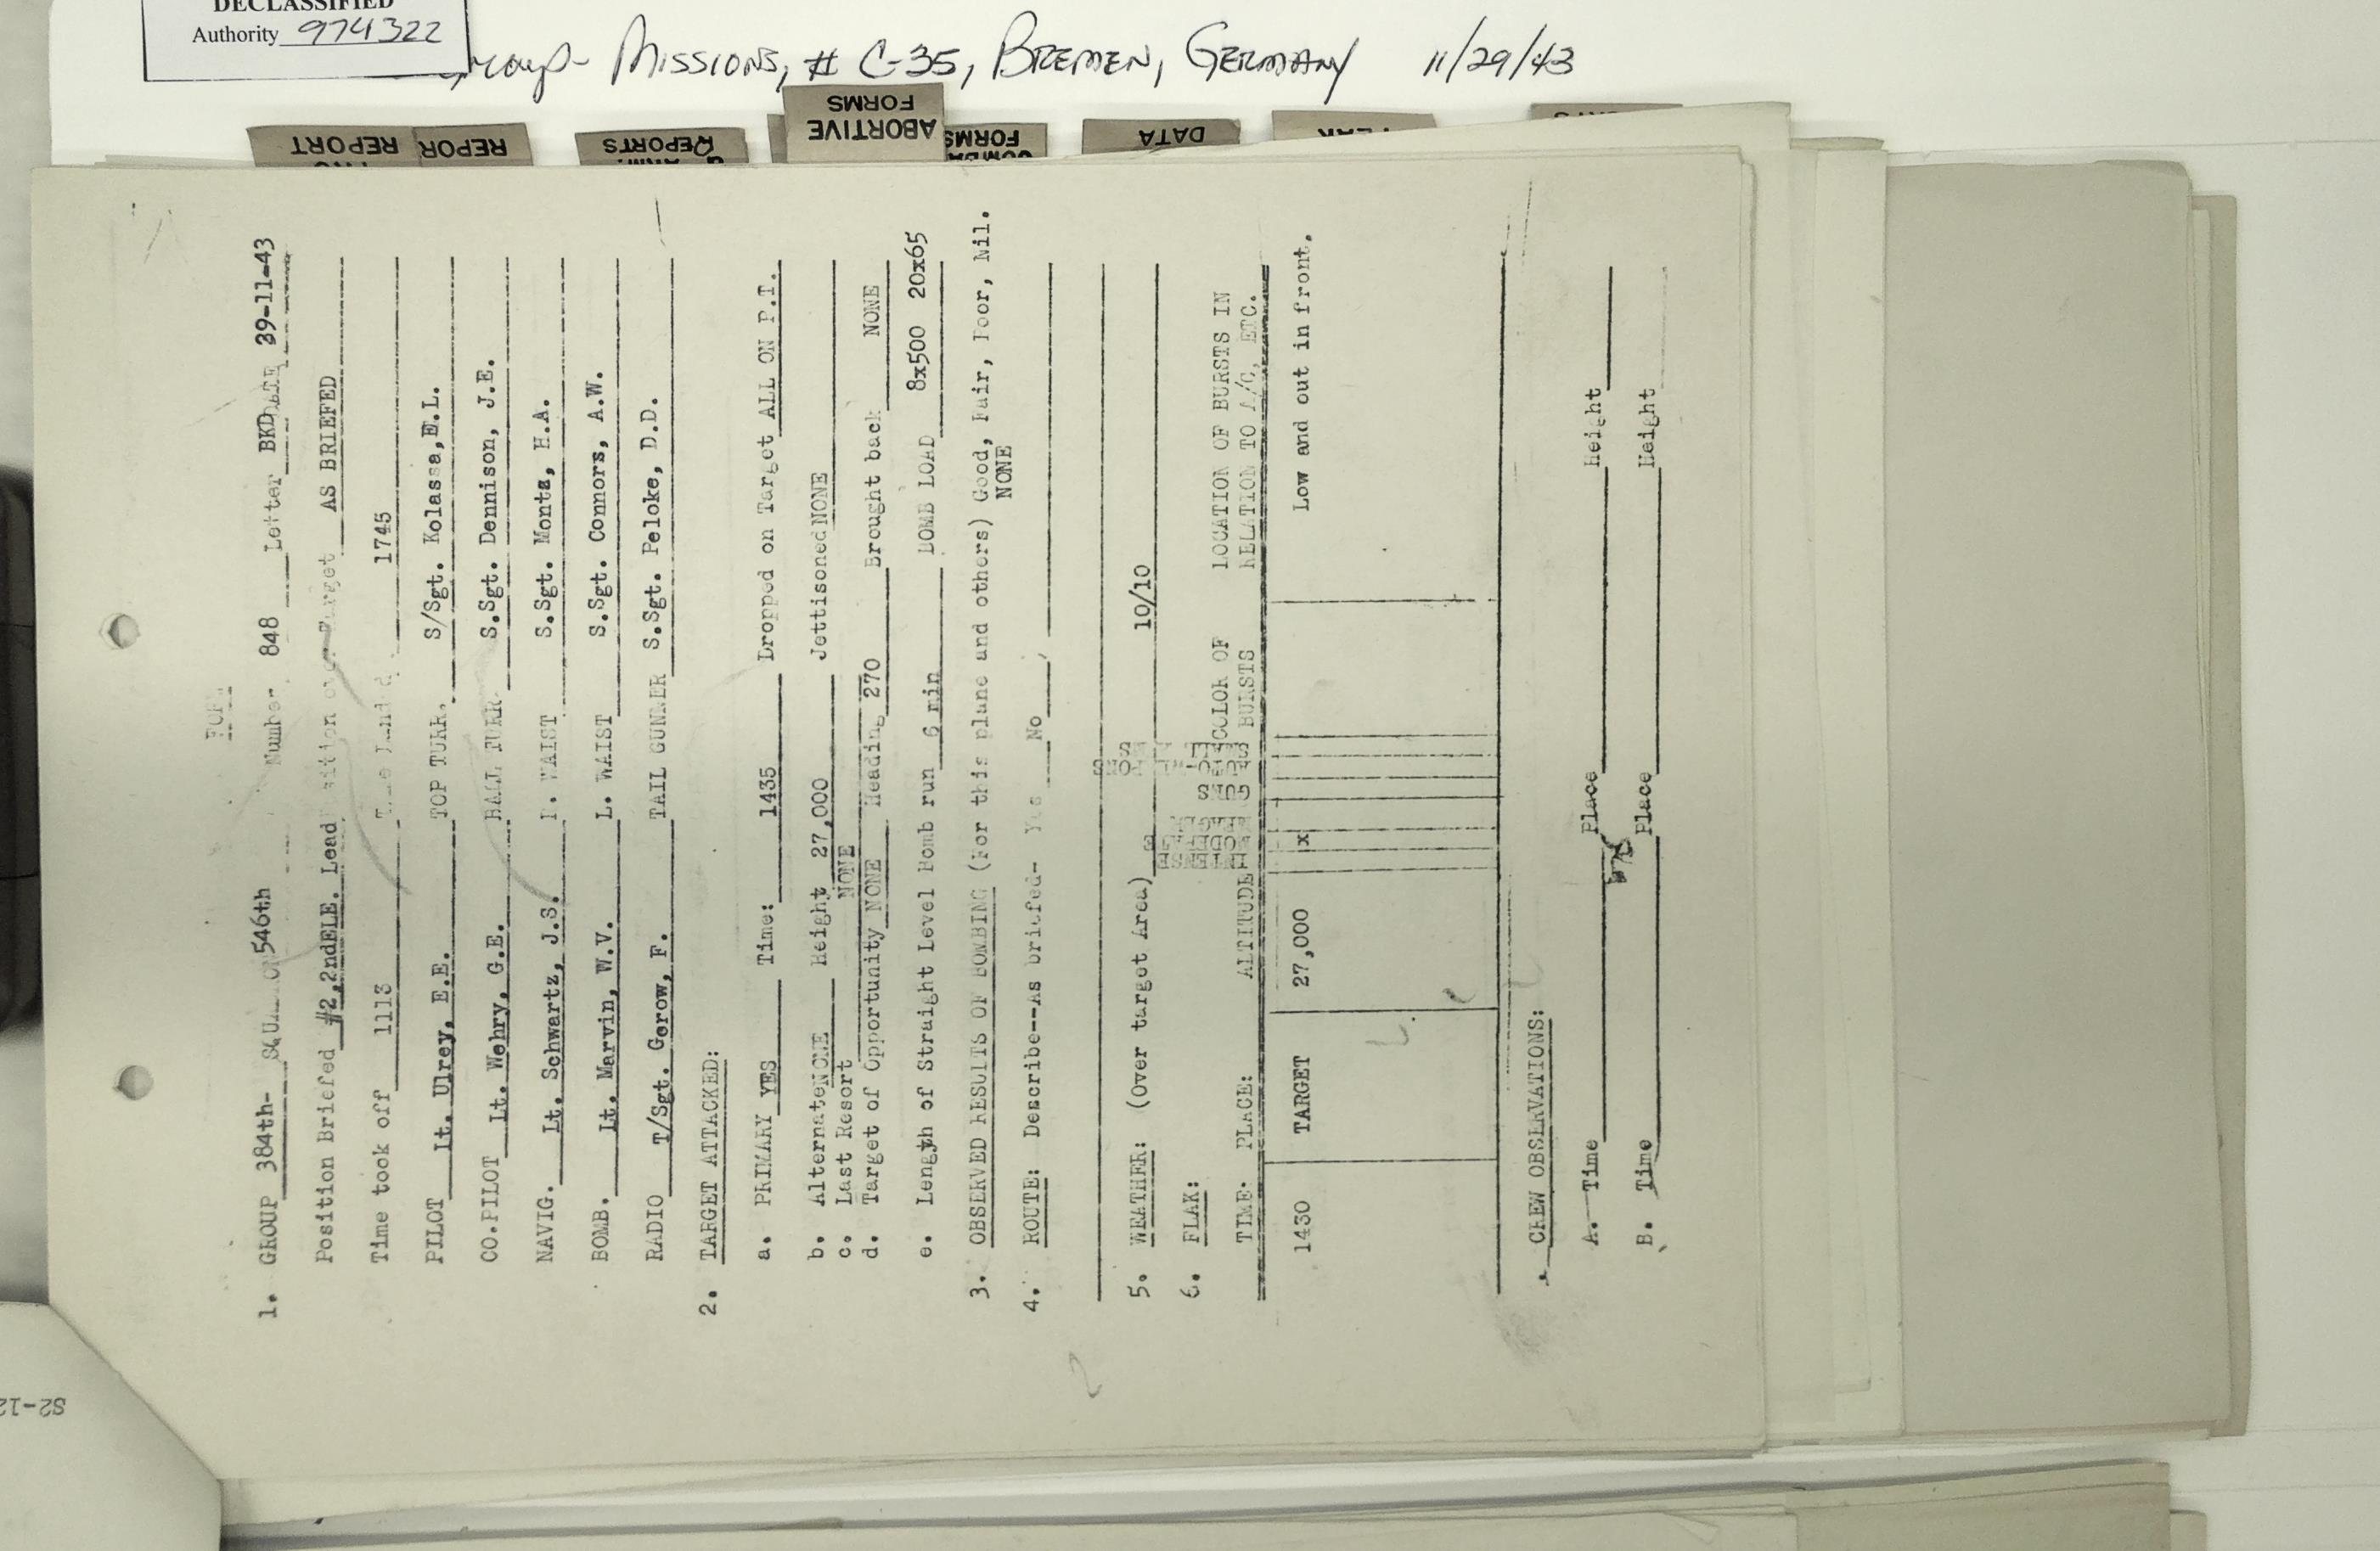 DECLASSIFIED
Authority 974322
Group- Missions, # C-35, Bremen, Germany 11/29/43
REPORT
REPOR
REPORTS
ABORTIVE
FORMS
COMBA
FORMS
DATA
FORM
1. GROUP 384th- SQUADRON 546th Number 848 Letter BKD DATE 39-11-43
Position Briefed #2,2ndELE. Lead Position over Target AS BRIEFED
Time took off 1113 Time Landed 1745
PILOT Lt. Ulrey, E.E. TOP TURR. S/Sgt. Kolassa,E.L.
CO.PILOT Lt. Wehry, G.E. BALL TURR. S.Sgt. Dennison, J.E.
NAVIG. Lt. Schwartz, J.S. R. WAIST S.Sgt. Montz, H.A.
BOMB. Lt. Marvin, W.V. L. WAIST S.Sgt. Connors, A.W.
RADIO T/Sgt. Gerow, F. TAIL GUNNER S.Sgt. Peloke, D.D.
2. TARGET ATTACKED:
a. PRIMARY YES Time: 1435 Dropped on Target ALL ON P.T.
b. Alternate NONE Height 27,000 Jettisoned NONE
c. Last Resort NONE
d. Target of Opportunity NONE Heading 270 Brought back NONE
e. Length of Straight Level Bomb run 6 min BOMB LOAD 8x500 20x65
3. OBSERVED RESULTS OF BOMBING (For this plane and others) Good, Fair, Poor, Nil.
NONE
4. ROUTE: Describe--As briefed- Yes No
5. WEATHER: (Over target Area) 10/10
6. FLAK:
TIME: PLACE: ALTITUDE INTENSE MODERATE MEAGER GUNS COLOR OF BURSTS LOCATION OF BURSTS IN RELATION TO A/C, ETC.
1430 TARGET 27,000 x Low and out in front.
CREW OBSERVATIONS:
A. Time Place Height
B. Time Place Height
S2-12